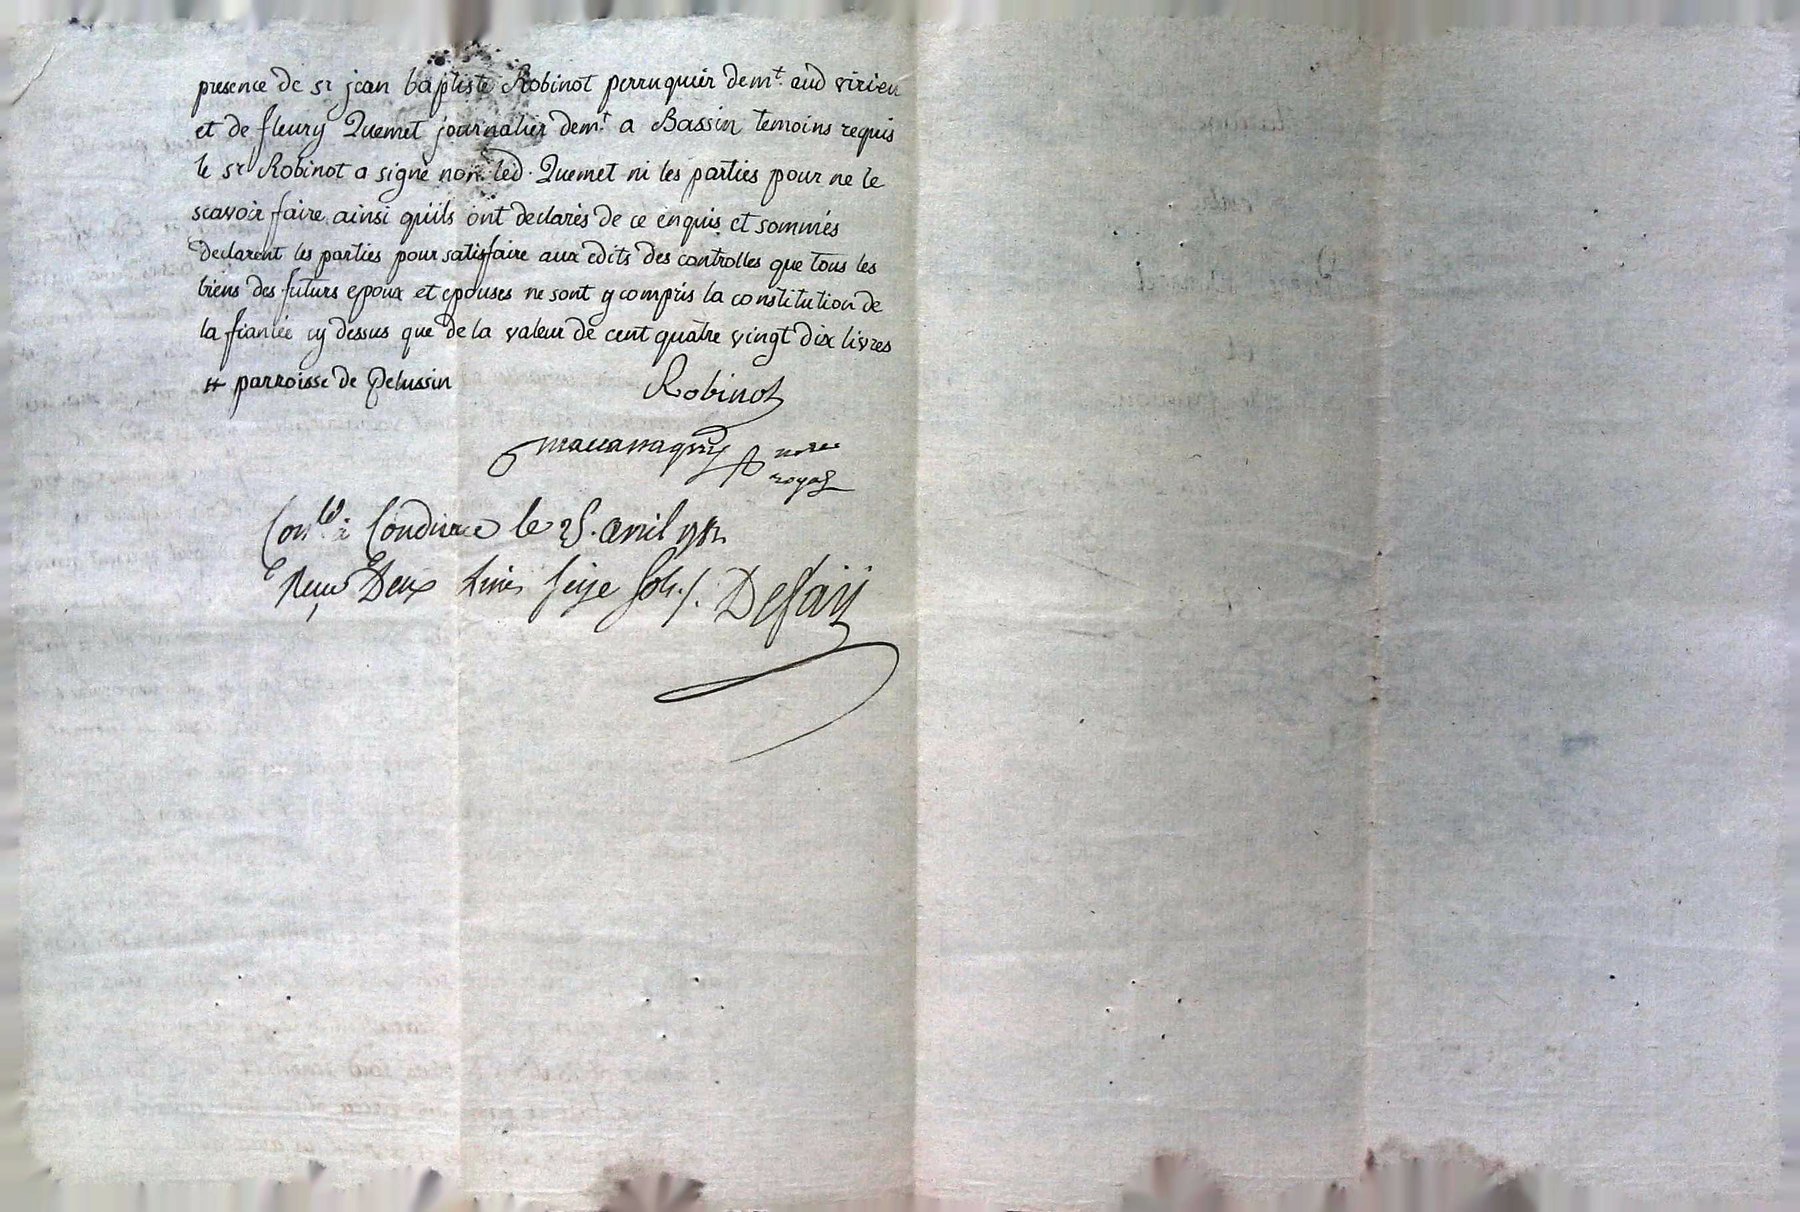 presence de sr jean baptiste Robinot perruquier demt. aud virieu
et de fleury Quemet journalier demt a Bassin temoins requis
le sr Robinot a signé non led. Quemet ni les parties pour ne le
scavoir faire ainsi qu'ils ont declarés de ce enquis et sommés
declarent les parties pour satisfaire aux edits des controlles que tous les
biens des futurs epoux et epouses ne sont y compris la constitution de
la fiancée cy dessus que de la valeur de cent quatre vingt dix livres
# parroisse de Pelussin
Robinot
nore
royal
à Condrieu le 25. avril
Reçu Deux livres seize sols ./. Defaÿ